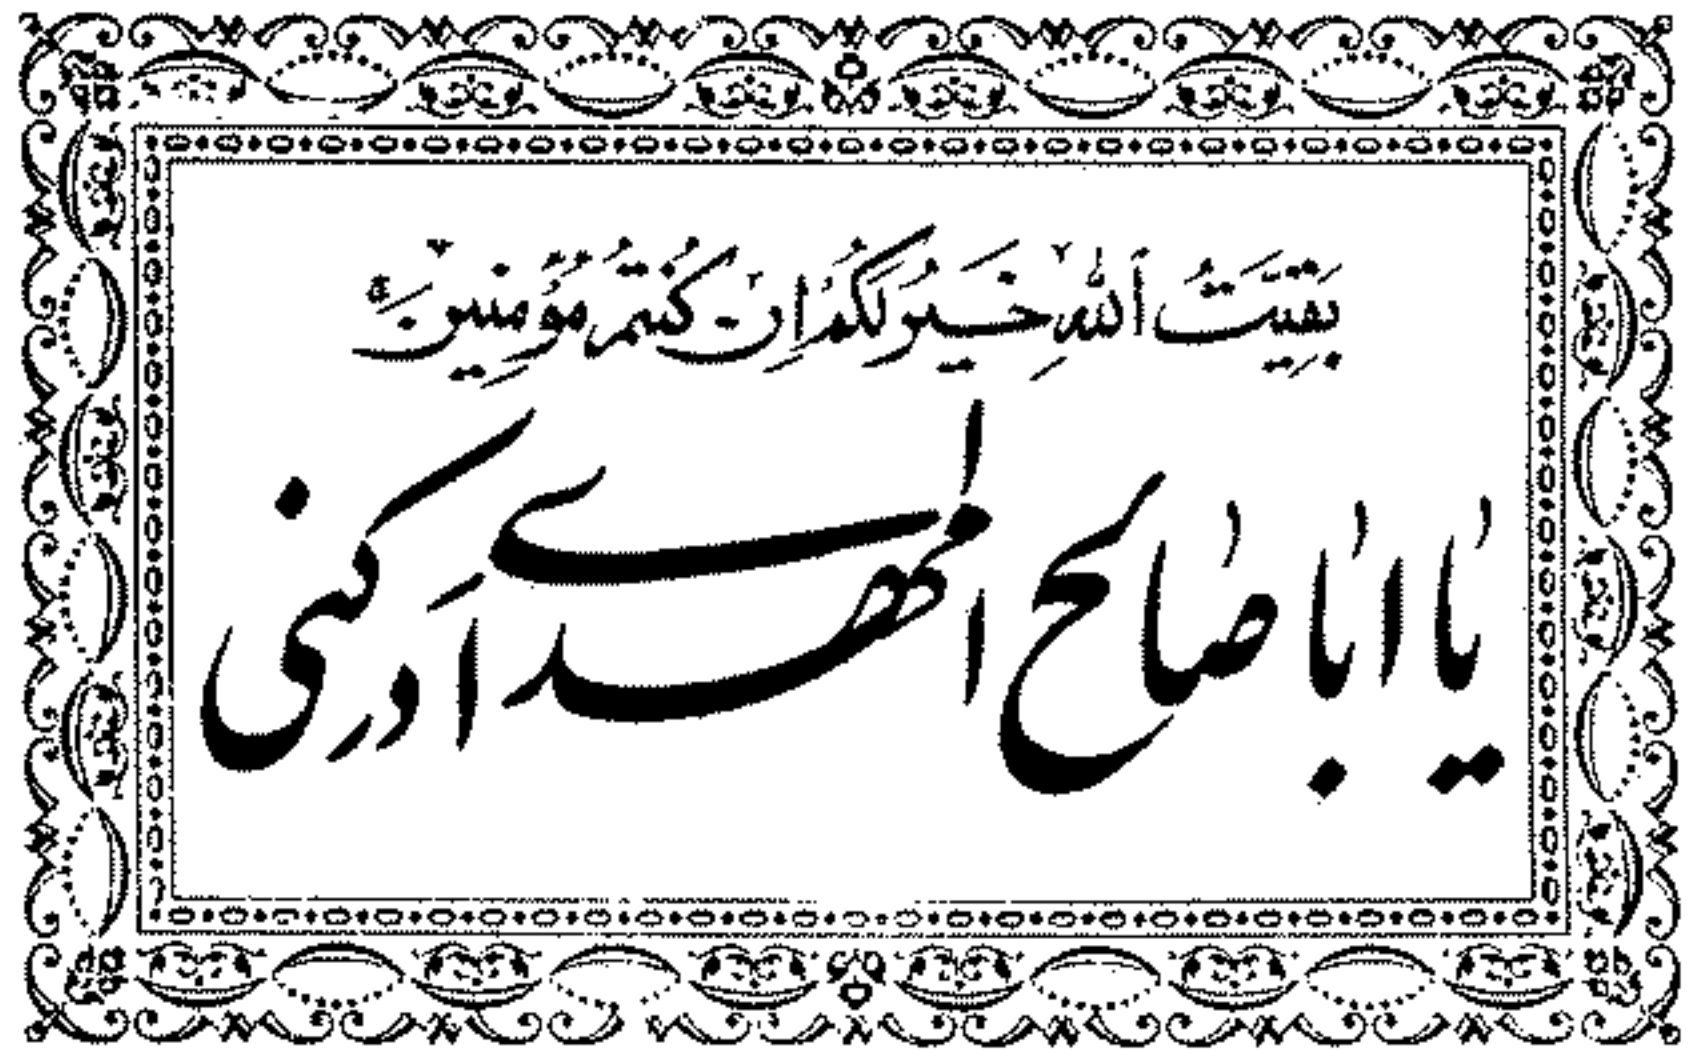 بَقِيَّتُ اَللّٰهِ خَيْرٌ لَكُمْ اِنْ كُنْتُمْ مُؤْمِنِينَ
يا ابا صالح المهدى ادركنى